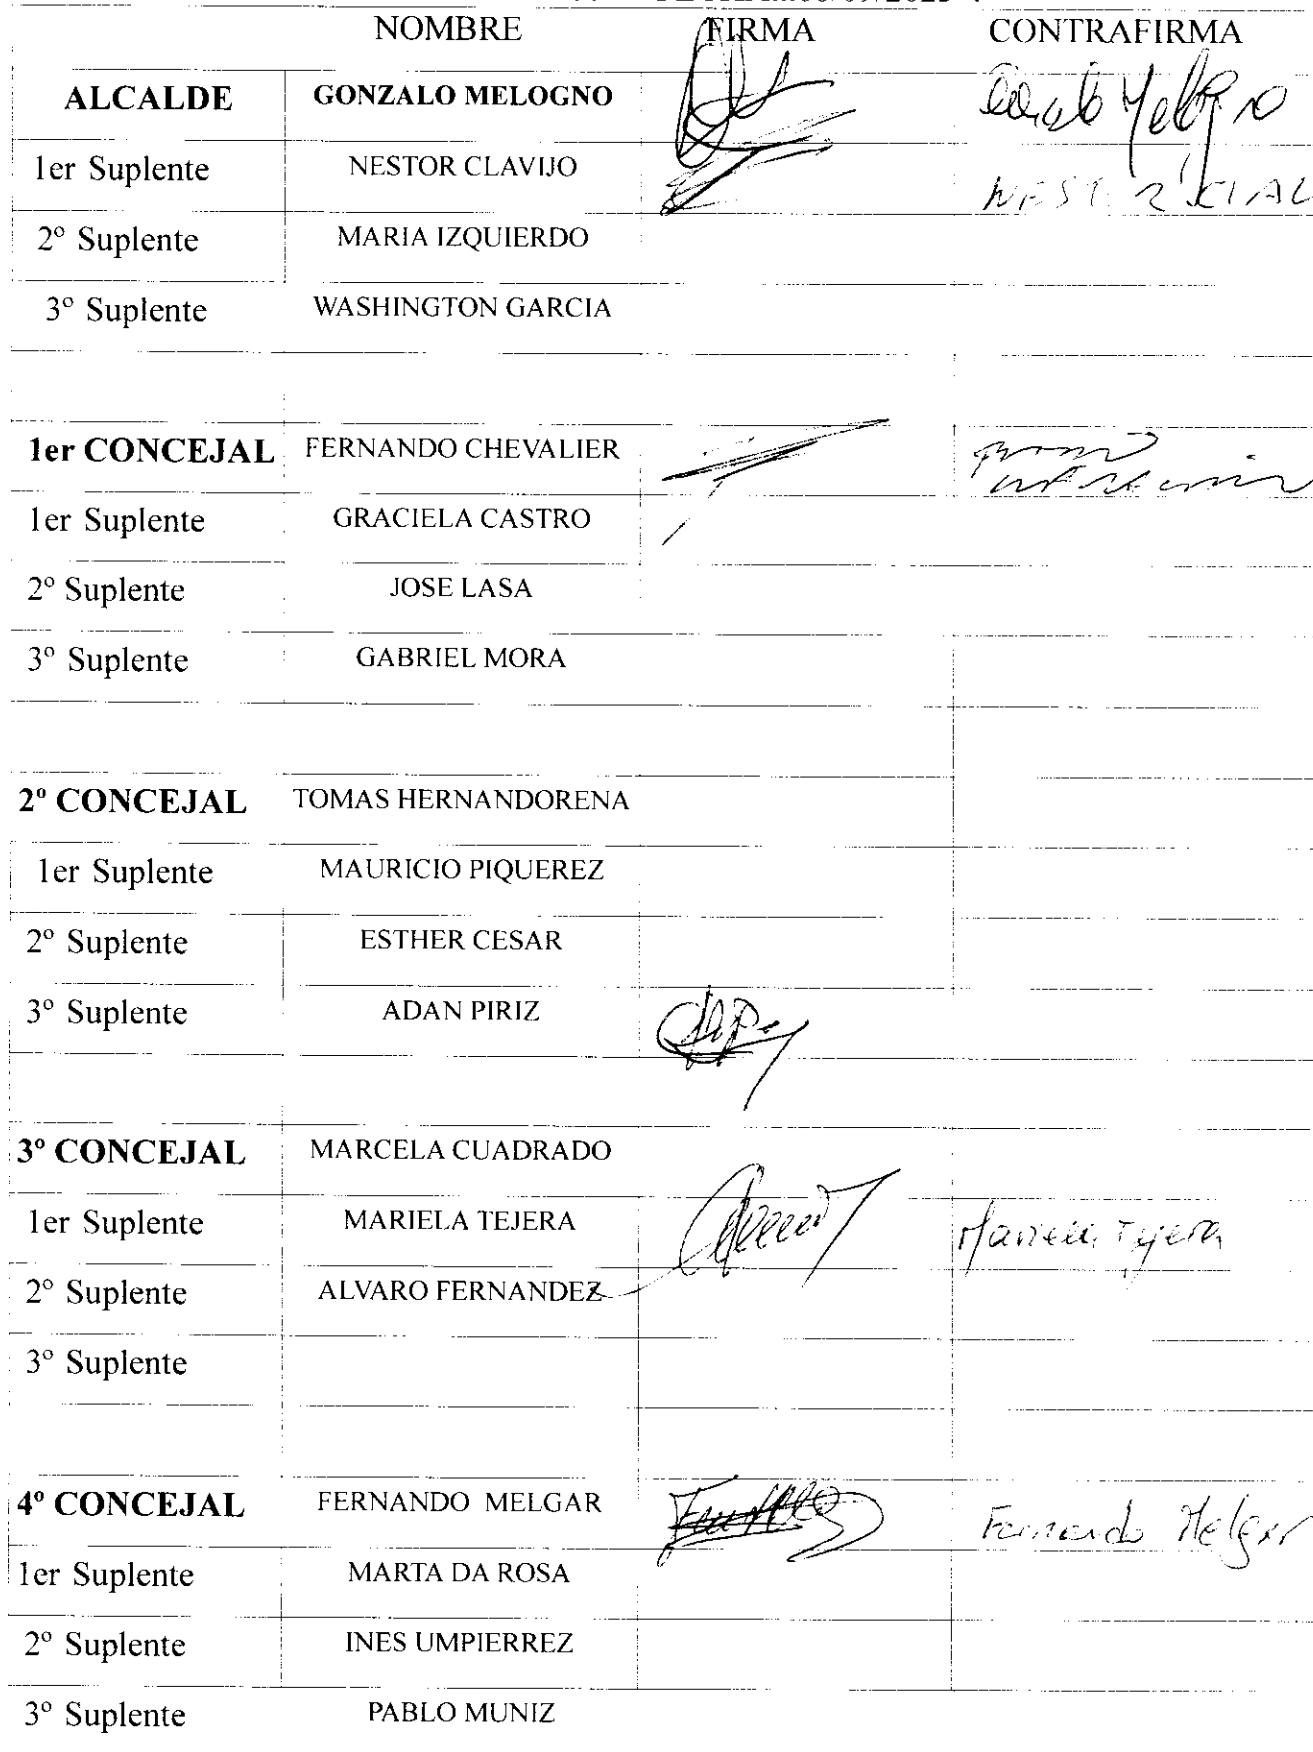 NOMBRE FIRMA CONTRAFIRMA
ALCALDE GONZALO MELOGNO
1er Suplente NESTOR CLAVIJO
2º Suplente MARIA IZQUIERDO
3º Suplente WASHINGTON GARCIA
1er CONCEJAL FERNANDO CHEVALIER
1er Suplente GRACIELA CASTRO
2º Suplente JOSE LASA
3º Suplente GABRIEL MORA
2º CONCEJAL TOMAS HERNANDORENA
1er Suplente MAURICIO PIQUEREZ
2º Suplente ESTHER CESAR
3º Suplente ADAN PIRIZ
3º CONCEJAL MARCELA CUADRADO
1er Suplente MARIELA TEJERA Mariela Tejera
2º Suplente ALVARO FERNANDEZ
3º Suplente
4º CONCEJAL FERNANDO MELGAR Fernando Melgar
1er Suplente MARTA DA ROSA
2º Suplente INES UMPIERREZ
3º Suplente PABLO MUNIZ